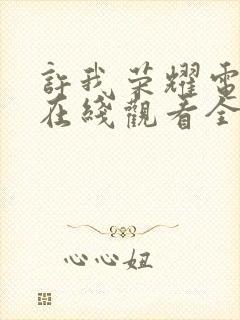 許我荣耀電
在綫觀看全
心心妞